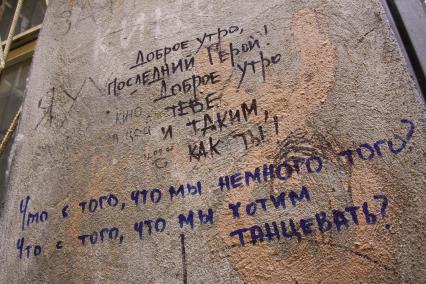 КИНО
Доброе утро,
Последний Герой!
Доброе утро
КИНО
ТЕБЕ
и ТАКИМ,
КАК ТЫ!
Что с того, что мы немного того?
Что с того, что мы хотим
ТАНЦЕВАТЬ?